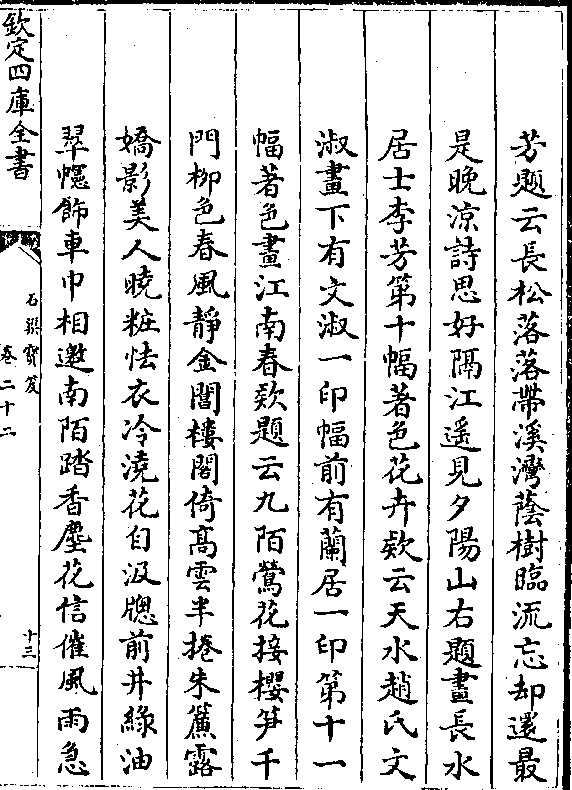 芳題云長松落落帶溪灣蔭樹臨流忘却還最
是晚涼詩思好隔江遥見夕陽山右題畫長水
居士李芳第十幅著色花卉欵云天水趙氏文
淑畫下有文淑一印幅前有蘭居一印第十一
幅著色畫江南春欵題云九陌鶯花接櫻笋千
門柳色春風靜金閶樓閣倚髙雲半捲朱簾露
嬌影美人曉粧怯衣冷澆花自汲牕前井綠油
翠幰飾車巾相邀南陌踏香塵花信催風雨急
欽定四庫全書
石渠寶笈
卷二十二
十三